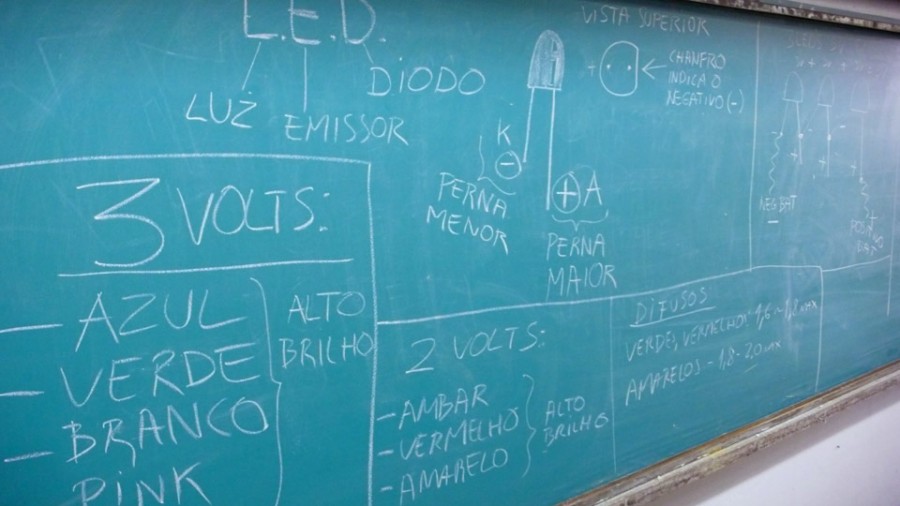 L.E.D.
LUZ
EMISSOR
DIODO
VISTA SUPERIOR
+
CHANFRO
INDICA O
NEGATIVO (-)
K
-
PERNA
MENOR
+ A
PERNA
MAIOR
NEG BAT
3 VOLTS:
- AZUL
- VERDE
- BRANCO
PINK
ALTO
BRILHO
2 VOLTS:
- AMBAR
- VERMELHO
- AMARELO
ALTO
BRILHO
DIFUSOS
VERDE, VERMELHO: 1,6
AMARELOS - 1,8 - 2,0 max